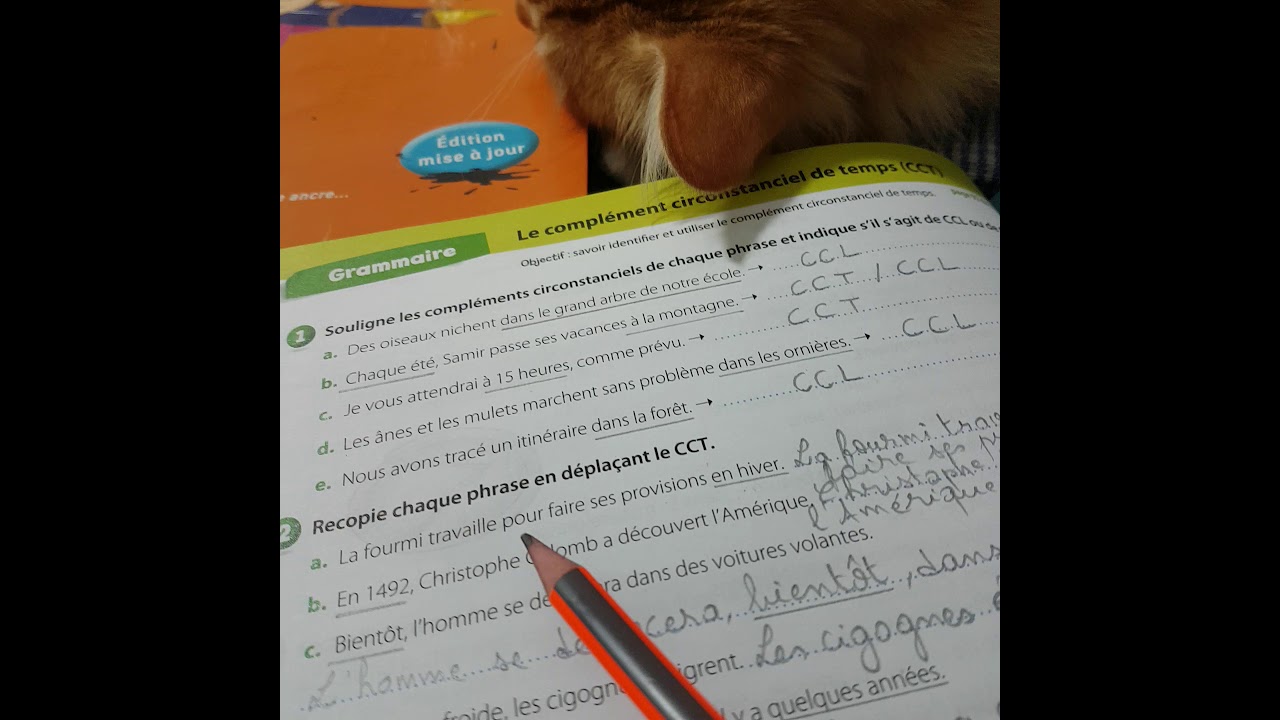 Édition
mise à jour
ancre...
Grammaire
Le complément circonstanciel de temps (CCT)
Objectif : savoir identifier et utiliser le complément circonstanciel de temps.
1 Souligne les compléments circonstanciels de chaque phrase et indique s'il s'agit de CCL ou
a. Des oiseaux nichent dans le grand arbre de notre école. → CCL
b. Chaque été, Samir passe ses vacances à la montagne. → CCT / CCL
c. Je vous attendrai à 15 heures, comme prévu. → CCT
d. Les ânes et les mulets marchent sans problème dans les ornières. → CCL
e. Nous avons tracé un itinéraire dans la forêt. → CCL
2 Recopie chaque phrase en déplaçant le CCT.
a. La fourmi travaille pour faire ses provisions en hiver. La fourmi
faire ses
b. En 1492, Christophe a découvert l'Amérique. Christophe
l'Amérique
c. Bientôt, l'homme se dans des voitures volantes.
L'homme se bientôt, dans
froide, les Les cigognes
y a quelques années.